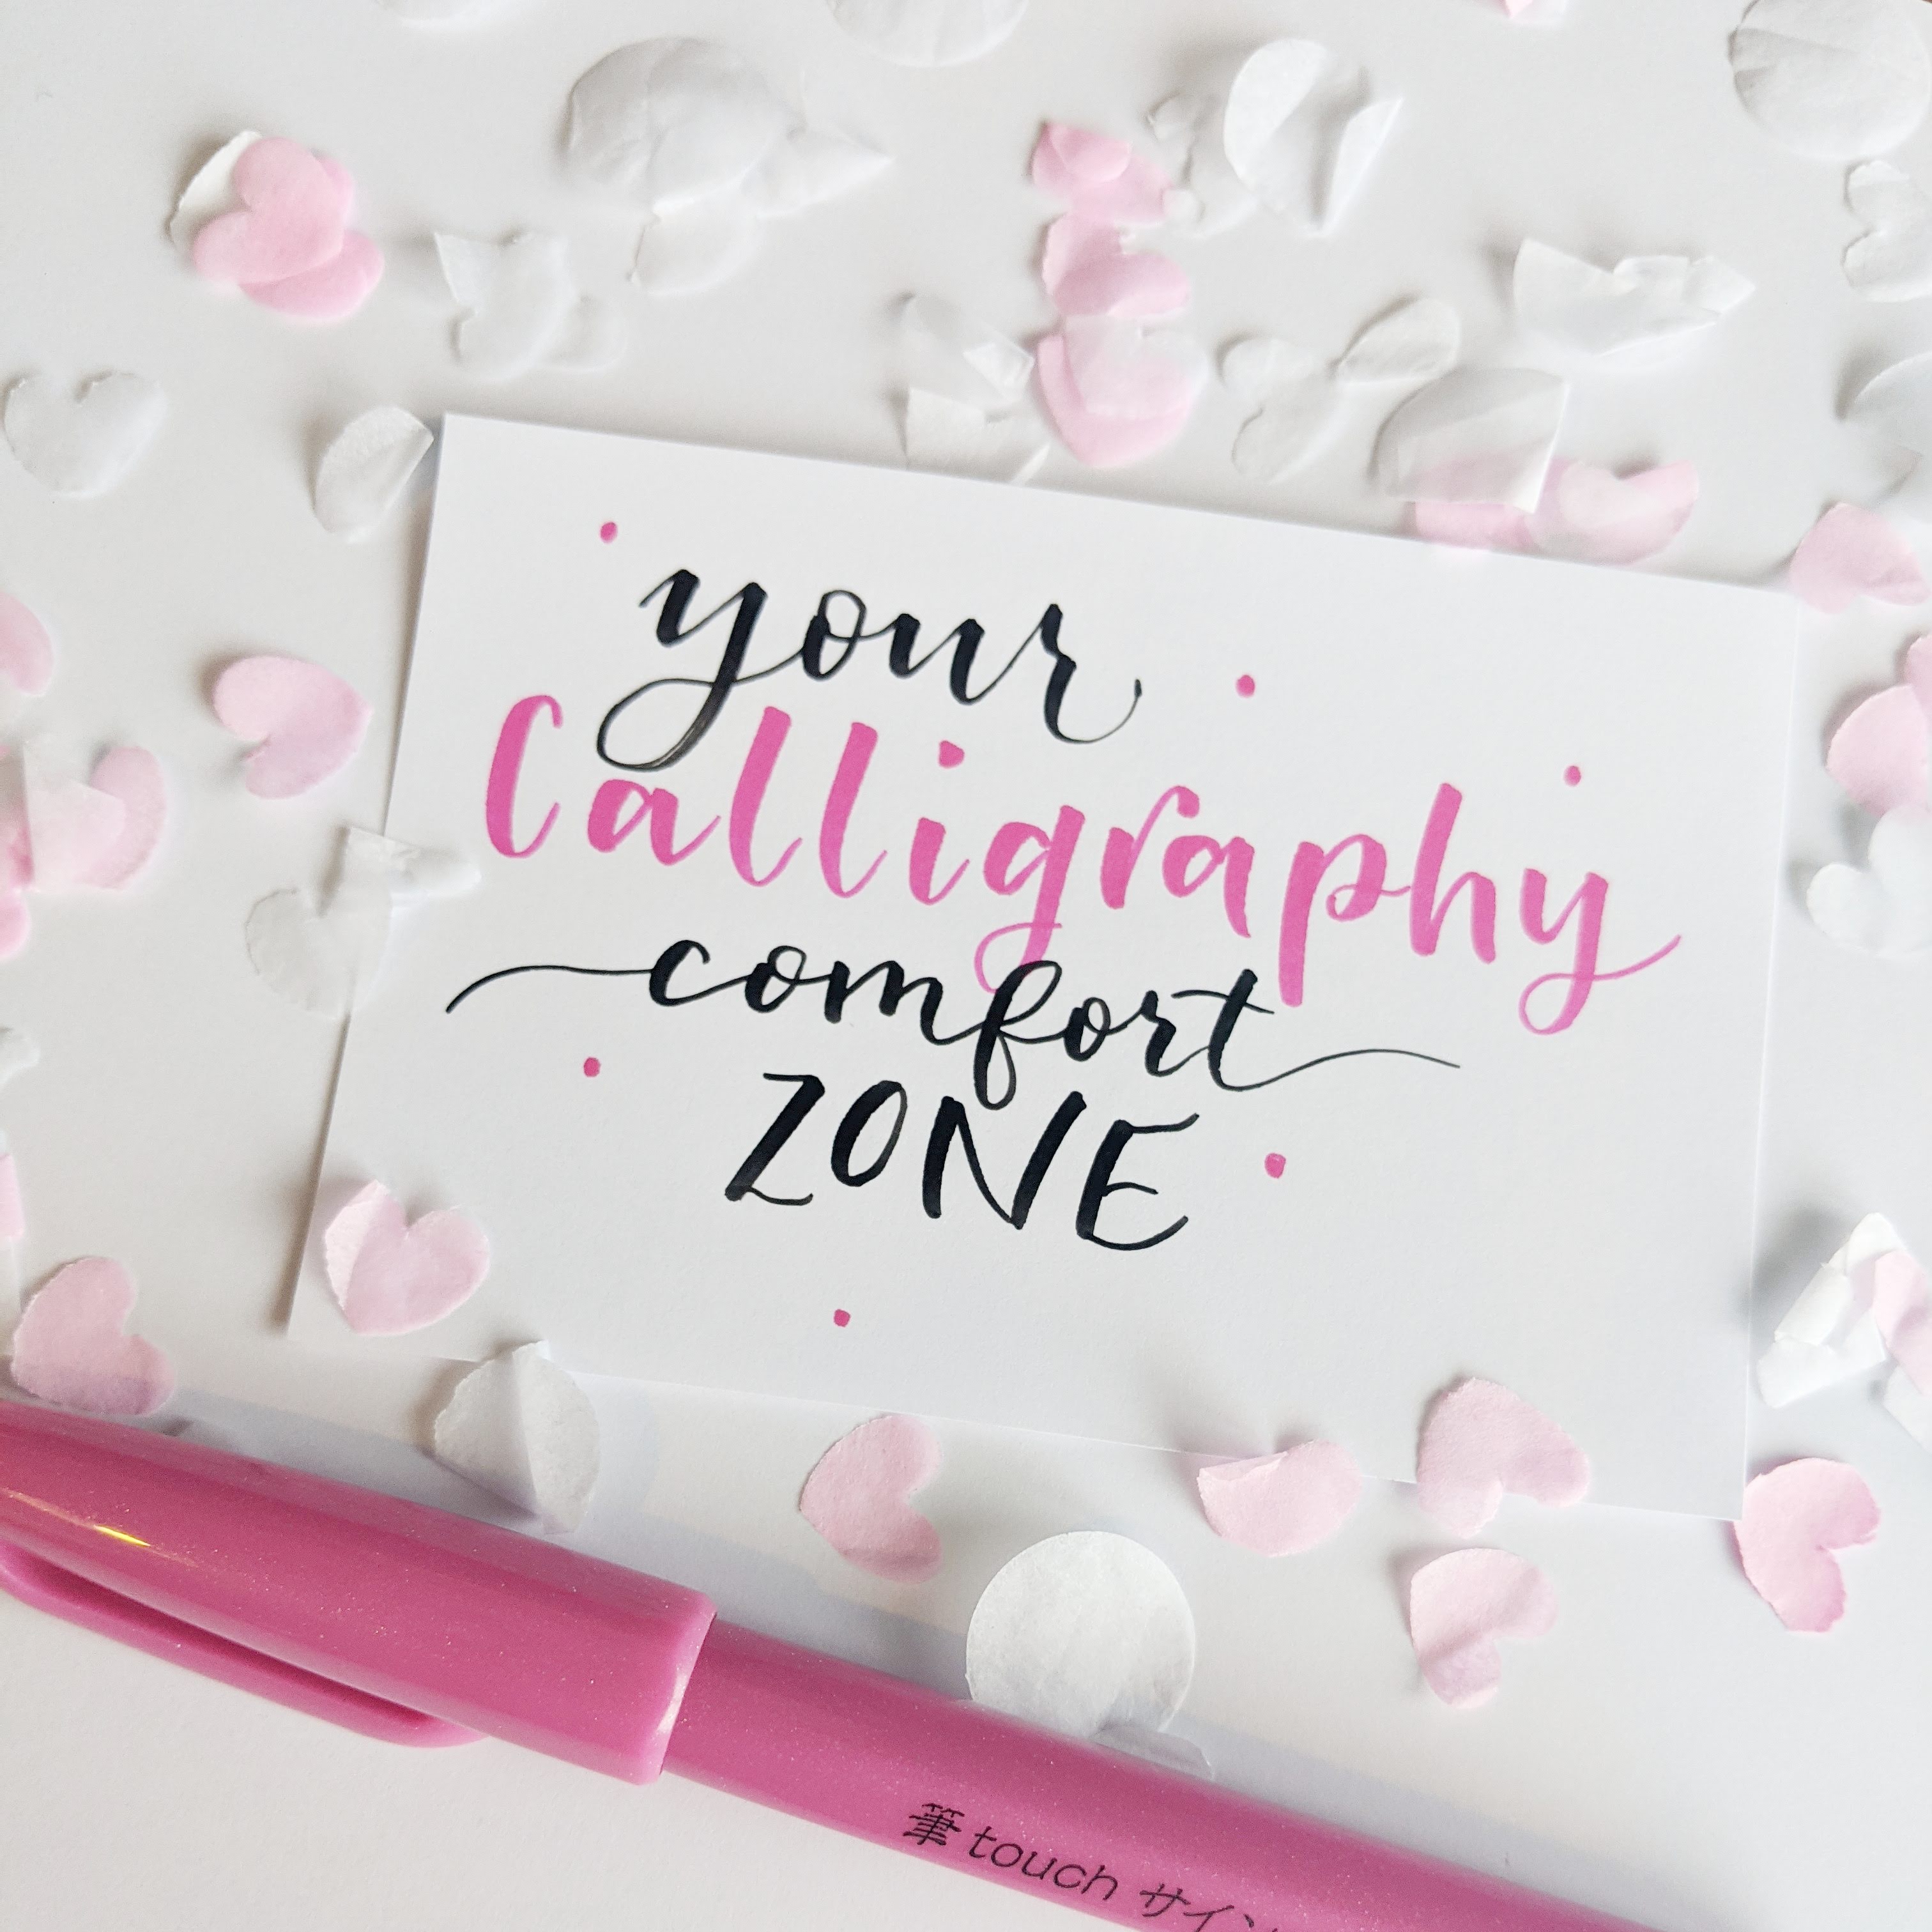 your
Calligraphy
comfort
ZONE
筆touch サイン